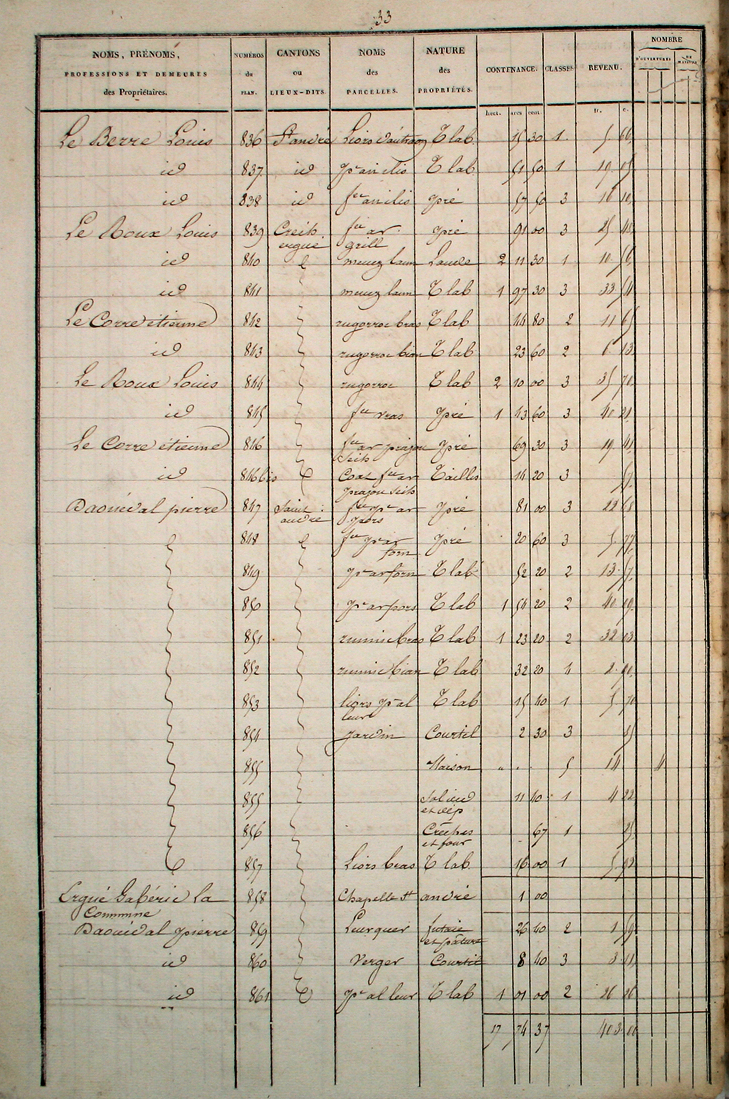 33
NOMS, PRÉNOMS, PROFESSIONS ET DEMEURES des Propriétaires. NUMÉROS du PLAN. CANTONS ou LIEUX-DITS. NOMS des PARCELLES. NATURE des PROPRIÉTÉS. CONTENANCE. CLASSES. REVENU. NOMBRE D'OUVERTURES
hect. ares cent. fr. c.
Le Berre Louis 836 St andré Liors T lab 15 30 1 5 66
id 837 id pc an ilis T lab 51 50 1 19 05
id 838 id fce an ilis pré 57 50 3 16 10
Le Roux Louis 839 Creich vigué fce ar grill pré 91 00 3 25 48
id 840 menez laun Lande 2 11 30 1 10 56
id 841 menez laun T lab 1 97 30 3 33 54
Le Corre étienne 842 rugorroc bras T lab 44 80 2 11 65
id 843 rugorroc bian T lab 23 60 2 6 13
Le Roux Louis 844 rugorroc T lab 2 10 00 3 35 70
id 845 fce vras pré 1 43 60 3 40 21
Le Corre étienne 846 fce ar prajou seih pré 69 30 3 19 41
id 846 bis Coat fce ar prajou seih Taillis 14 20 3
Daouédal pierre 847 Saint andré fce pc ar pors pré 81 00 3 22 68
848 fce pc ar forn pré 20 60 3 5 77
849 pc ar forn T lab 52 20 2 13 57
850 pc ar pors T lab 1 54 20 2 40 09
851 runnic bras T lab 1 23 20 2 32 03
852 runnic bian T lab 32 20 1
853 liors pc al leur T lab 15 40 1 5 70
854 jardin Courtil 2 30 3
855 Maison 5 14 4
855 Sol aud et dép 11 40 1 4 22
856 Crèches et four 67 1 25
857 Liors bras T lab 16 00 1 5 92
Ergué Gabéric la Commune 858 Chapelle St andré 1 00
Daouédal pierre 859 Leurquer futaie et pâture 26 40 2 1 59
id 860 Verger Courtil 8 40 3 3 11
id 861 pc al leur T lab 1 01 00 2 26 26
17 74 37